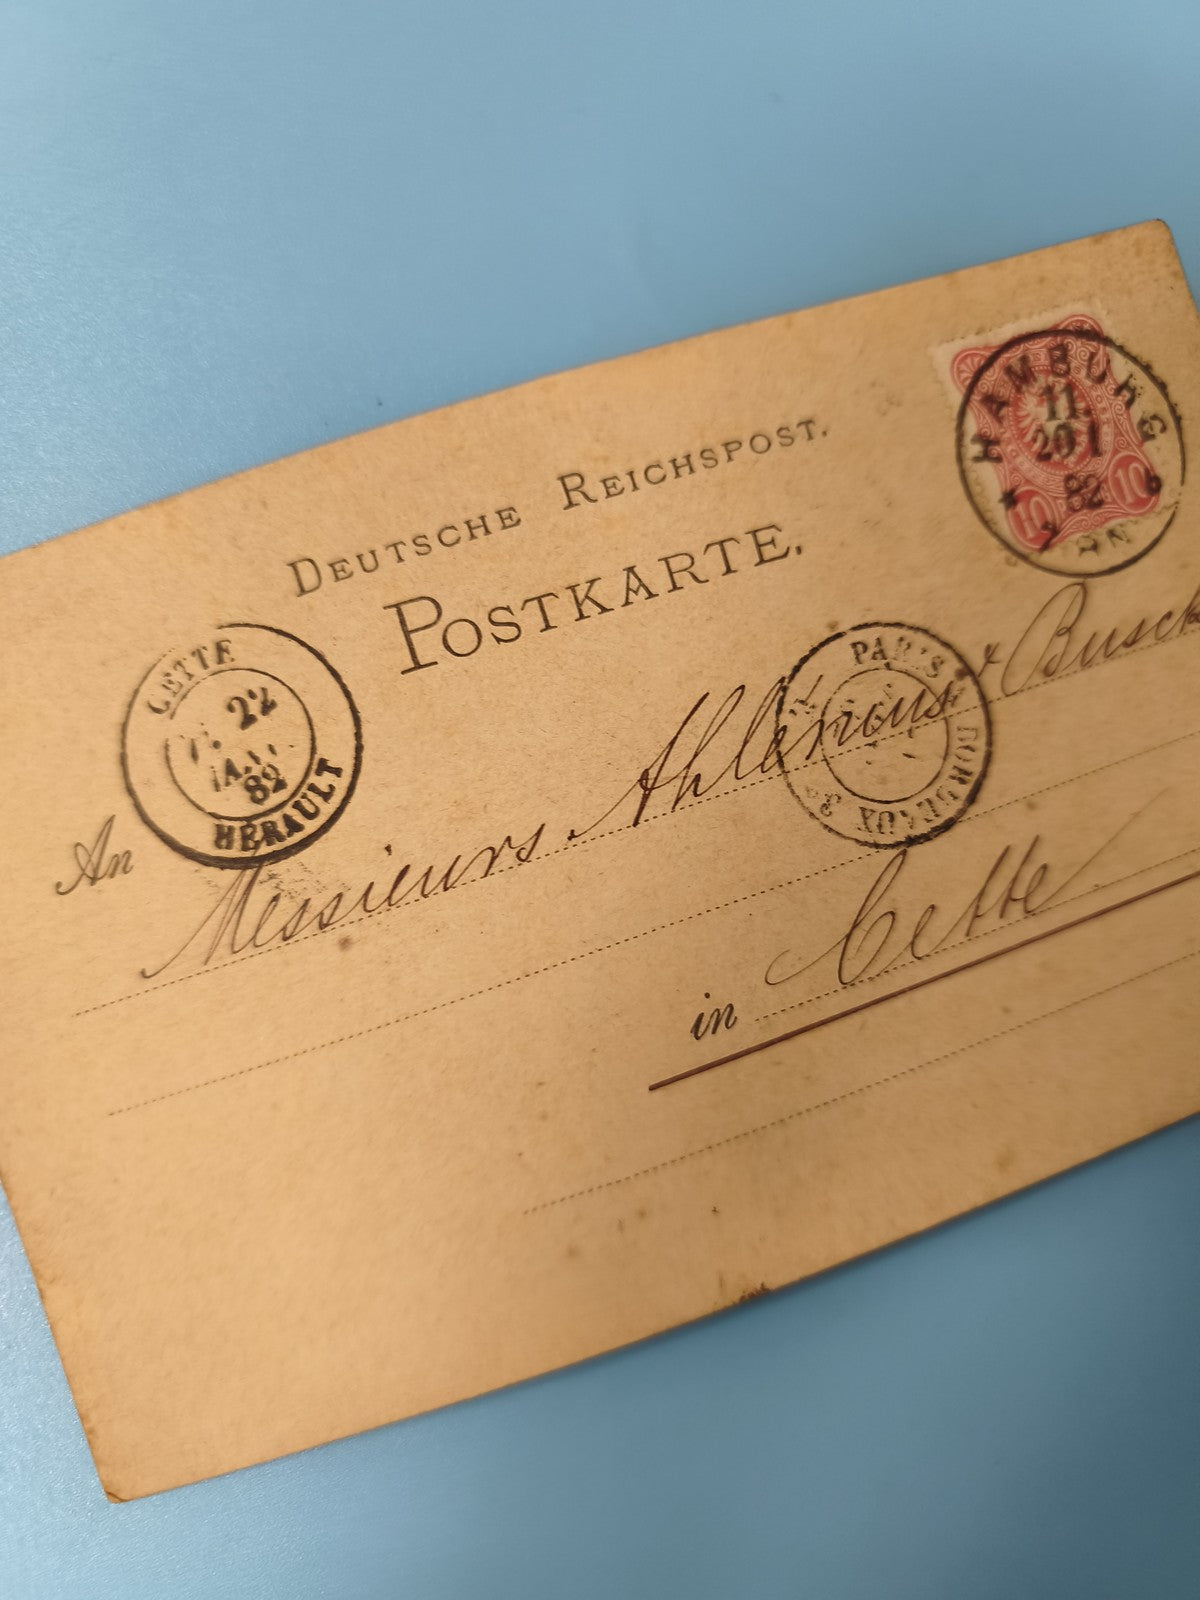 DEUTSCHE REICHSPOST.
POSTKARTE.
HAMBURG
11
20 1
82
10 10
CETTE
22
JAN.
82
HERAULT
PARIS
BORDEAUX
An Messieurs Ahlemous & Busck
in Cette